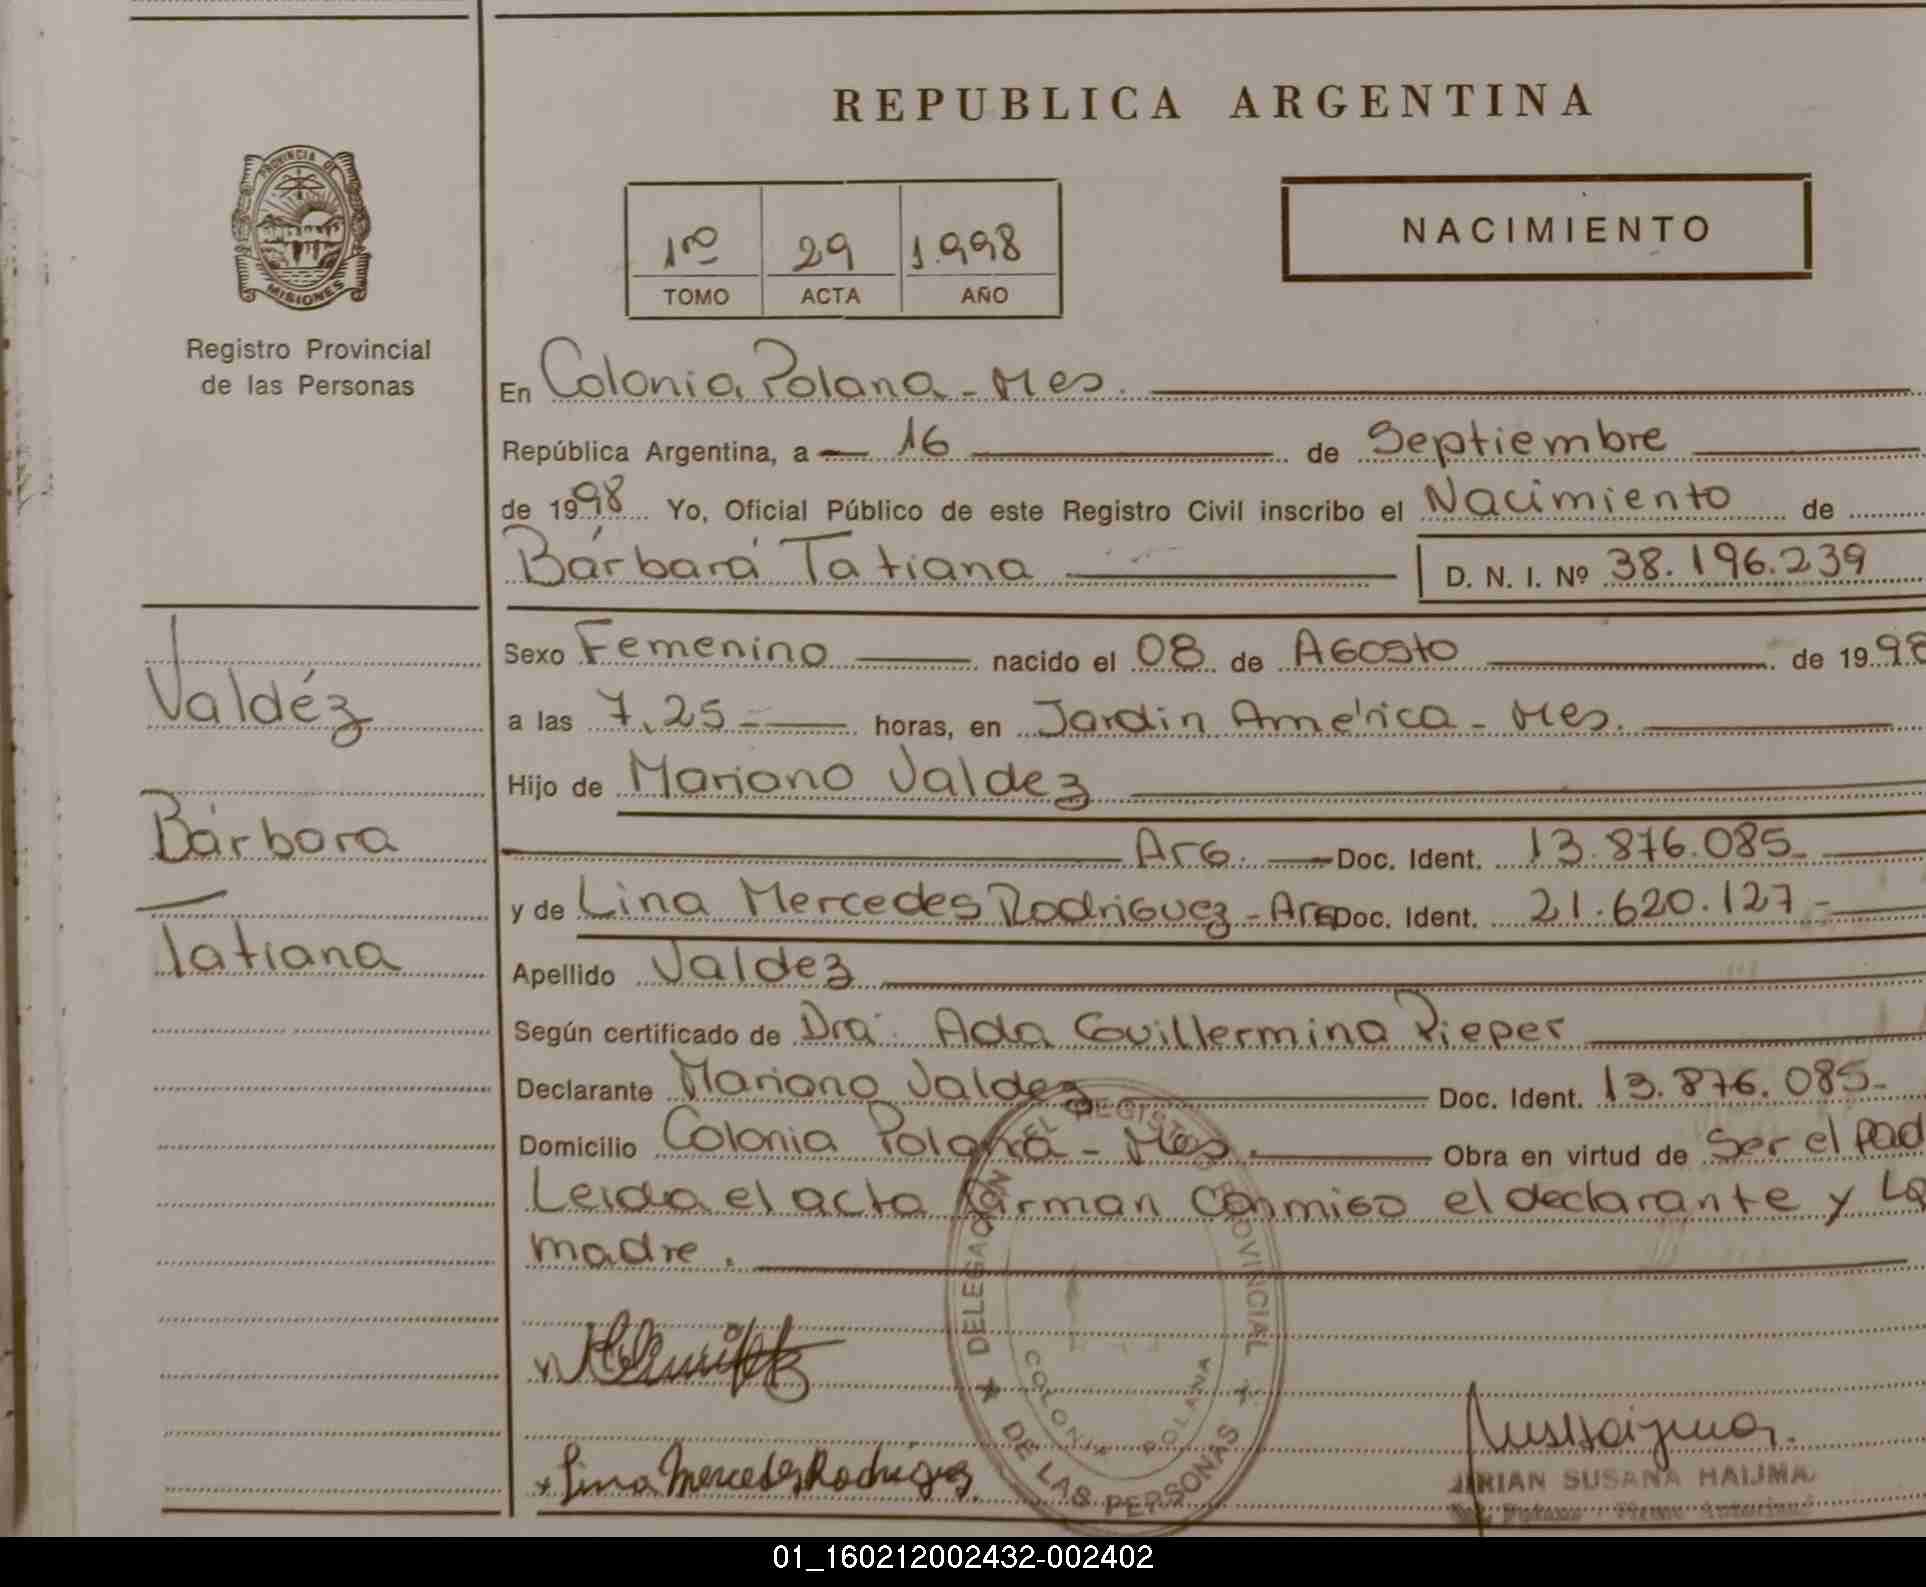 REPUBLICA ARGENTINA
PROVINCIA DE
MISIONES
Registro Provincial
de las Personas
1ro 29 1.998
TOMO ACTA AÑO
NACIMIENTO
En Colonia Polana - Mes.
República Argentina, a 16 de Septiembre
de 1998 Yo, Oficial Público de este Registro Civil inscribo el Nacimiento de
Bárbara Tatiana D. N. I. Nº 38.196.239
Valdéz
Bárbara
Tatiana
Sexo Femenino nacido el 08 de Agosto de 1998
a las 7,25 - horas, en Jardin América - Mes.
Hijo de Mariano Valdez
Arg. Doc. Ident. 13.876.085-
y de Lina Mercedes Rodriguez - Arg Doc. Ident. 21.620.127-
Apellido Valdez
Según certificado de Dra. Ada Guillermina Pieper
Declarante Mariano Valdez Doc. Ident. 13.876.085-
Domicilio Colonia Polana - Mes. Obra en virtud de Ser el Pad
Leida el acta firman conmigo el declarante y La
madre.
DELEGACION DEL REGISTRO PROVINCIAL
DE LAS PERSONAS
COLONIA POLANA
Lina Mercedes Rodriguez
MIRIAN SUSANA HAIJMA
01_160212002432-002402